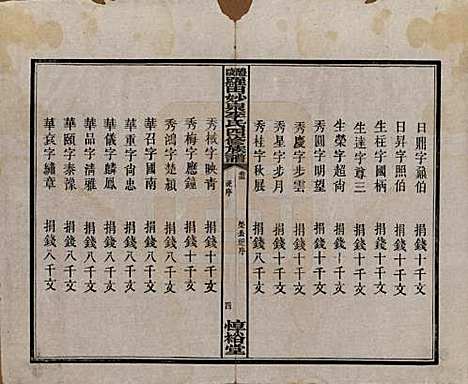 日鼎字鼐伯 捐錢十千文
日昇字照伯 捐錢十千文
生柱字國柄 捐錢十千文
生達字尊三 捐錢十千文
生榮字超尚 捐錢十千文
秀圓字明望 捐錢十千文
秀慶字步雲 捐錢十千文
秀星字步月 捐錢十千文
秀桂字秋展 捐錢十千文
妙泉李氏四修族譜
四
惇裕堂
秀槐字映青 捐錢十千文
秀梅字應鐘 捐錢十千文
秀鴻字楚穎 捐錢八千文
華召字國南 捐錢八千文
華重字尚忠 捐錢八千文
華儀字麟鳳 捐錢八千文
華品字清雅 捐錢八千文
華頤字泰豫 捐錢八千文
華袞字繡章 捐錢八千文